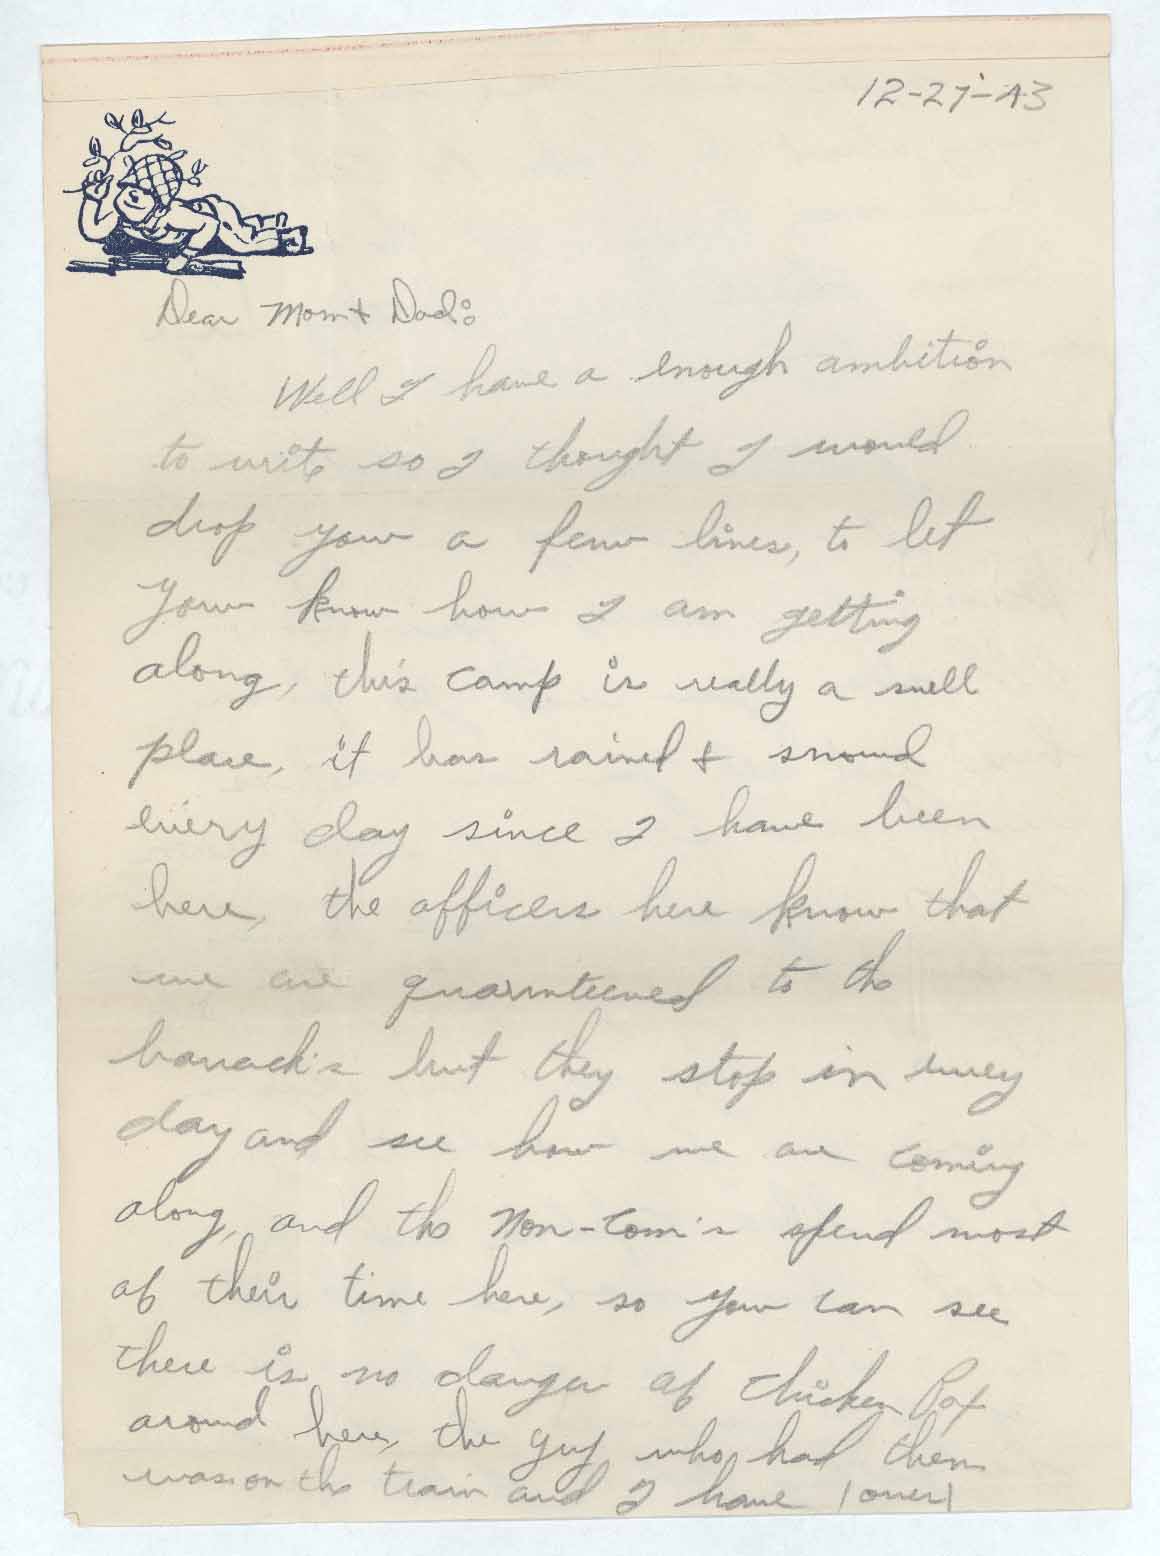 12-27-43
Dear Mom & Dad:
Well I have a enough ambition
to write so I thought I would
drop you a few lines, to let
you know how I am getting
along, this camp is really a swell
place, it has rained & snowed
every day since I have been
here, the officers here know that
we are quarinteened to the
barrack's but they stop in every
day and see how we are coming
along, and the Non-Com's spend most
of their time here, so you can see
there is no danger of Chicken Pox
around here, the guy who had them
was on the train and I have (over)